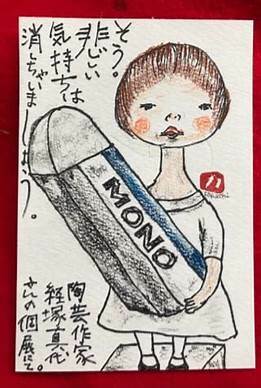 そう。
悲しい
気持ちは
消しちゃいましょう。
MONO
陶芸作家
経塚真代
さんの個展にて。